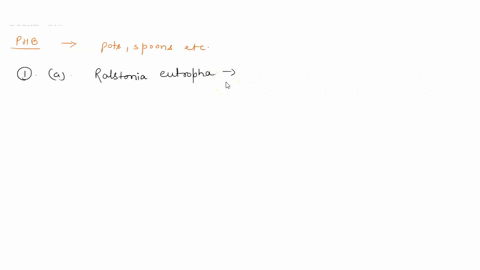 PHB → pots, spoons etc.
① (a). Ralstonia eutropha →